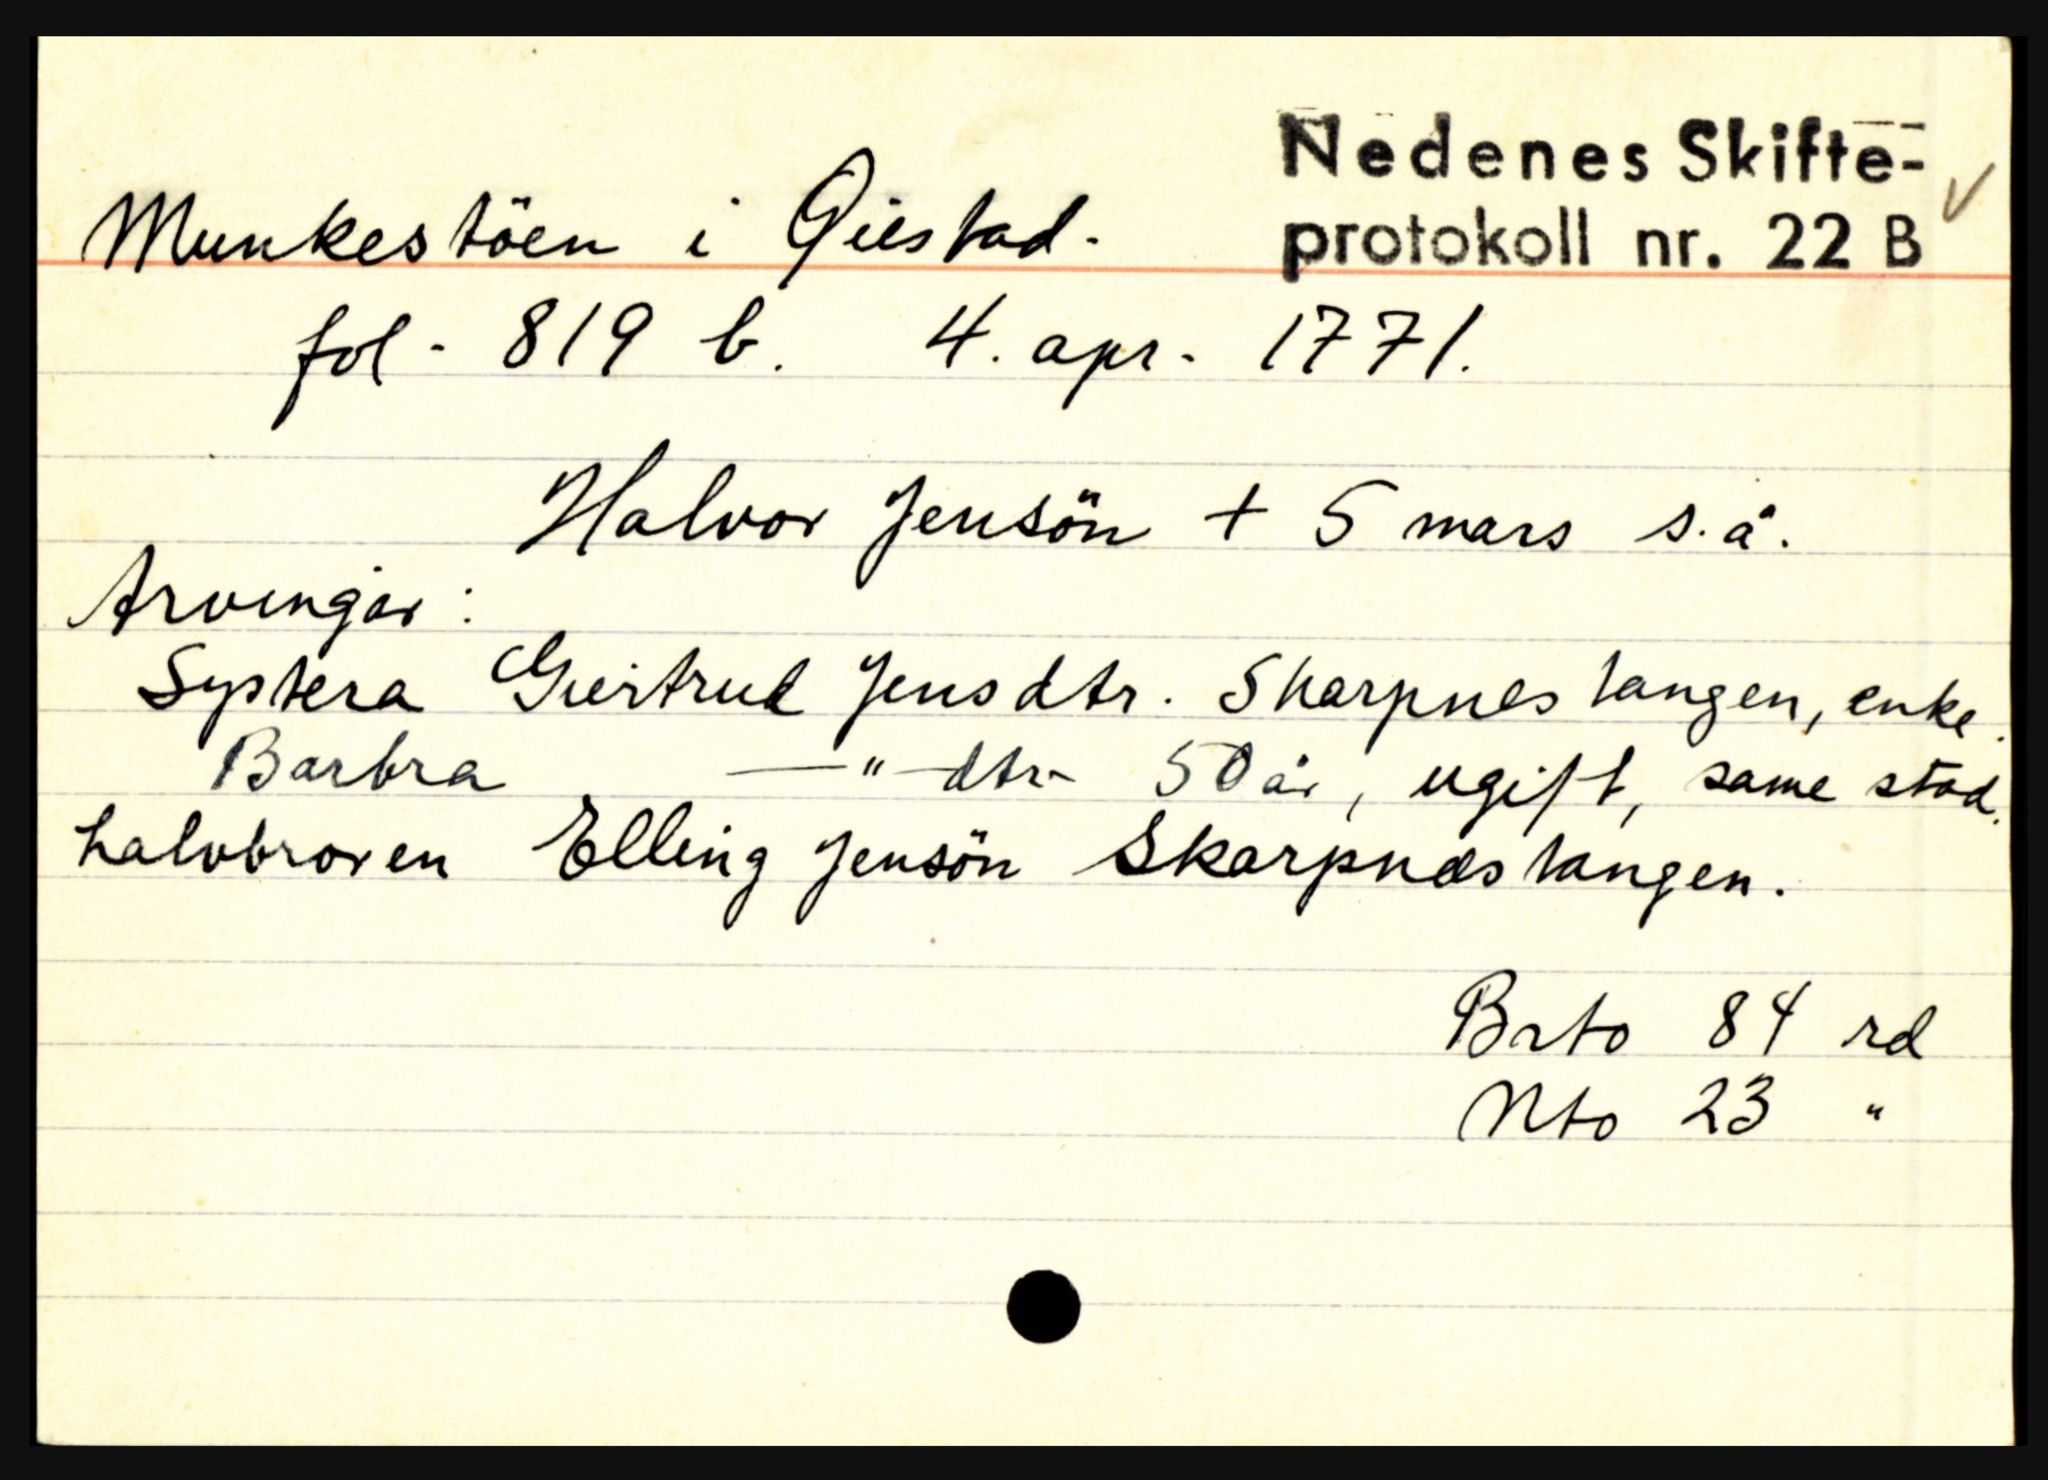 Nedenes Skifte-
protokoll nr. 22 B ✓
Munkestöen i Öiestad.
fol. 819 b. 4. apr. 1771.
Halvor Jensön + 5 mars s.å.
Arvingar:
Systera Giertrud Jensdtr. Skarpnes tangen, enke.
Barbra —"— dtr 50 år, ugift, same stad.
halvbroren Elling Jensön Skarpnæs tangen.
Brto 84 rd
Nto 23 "